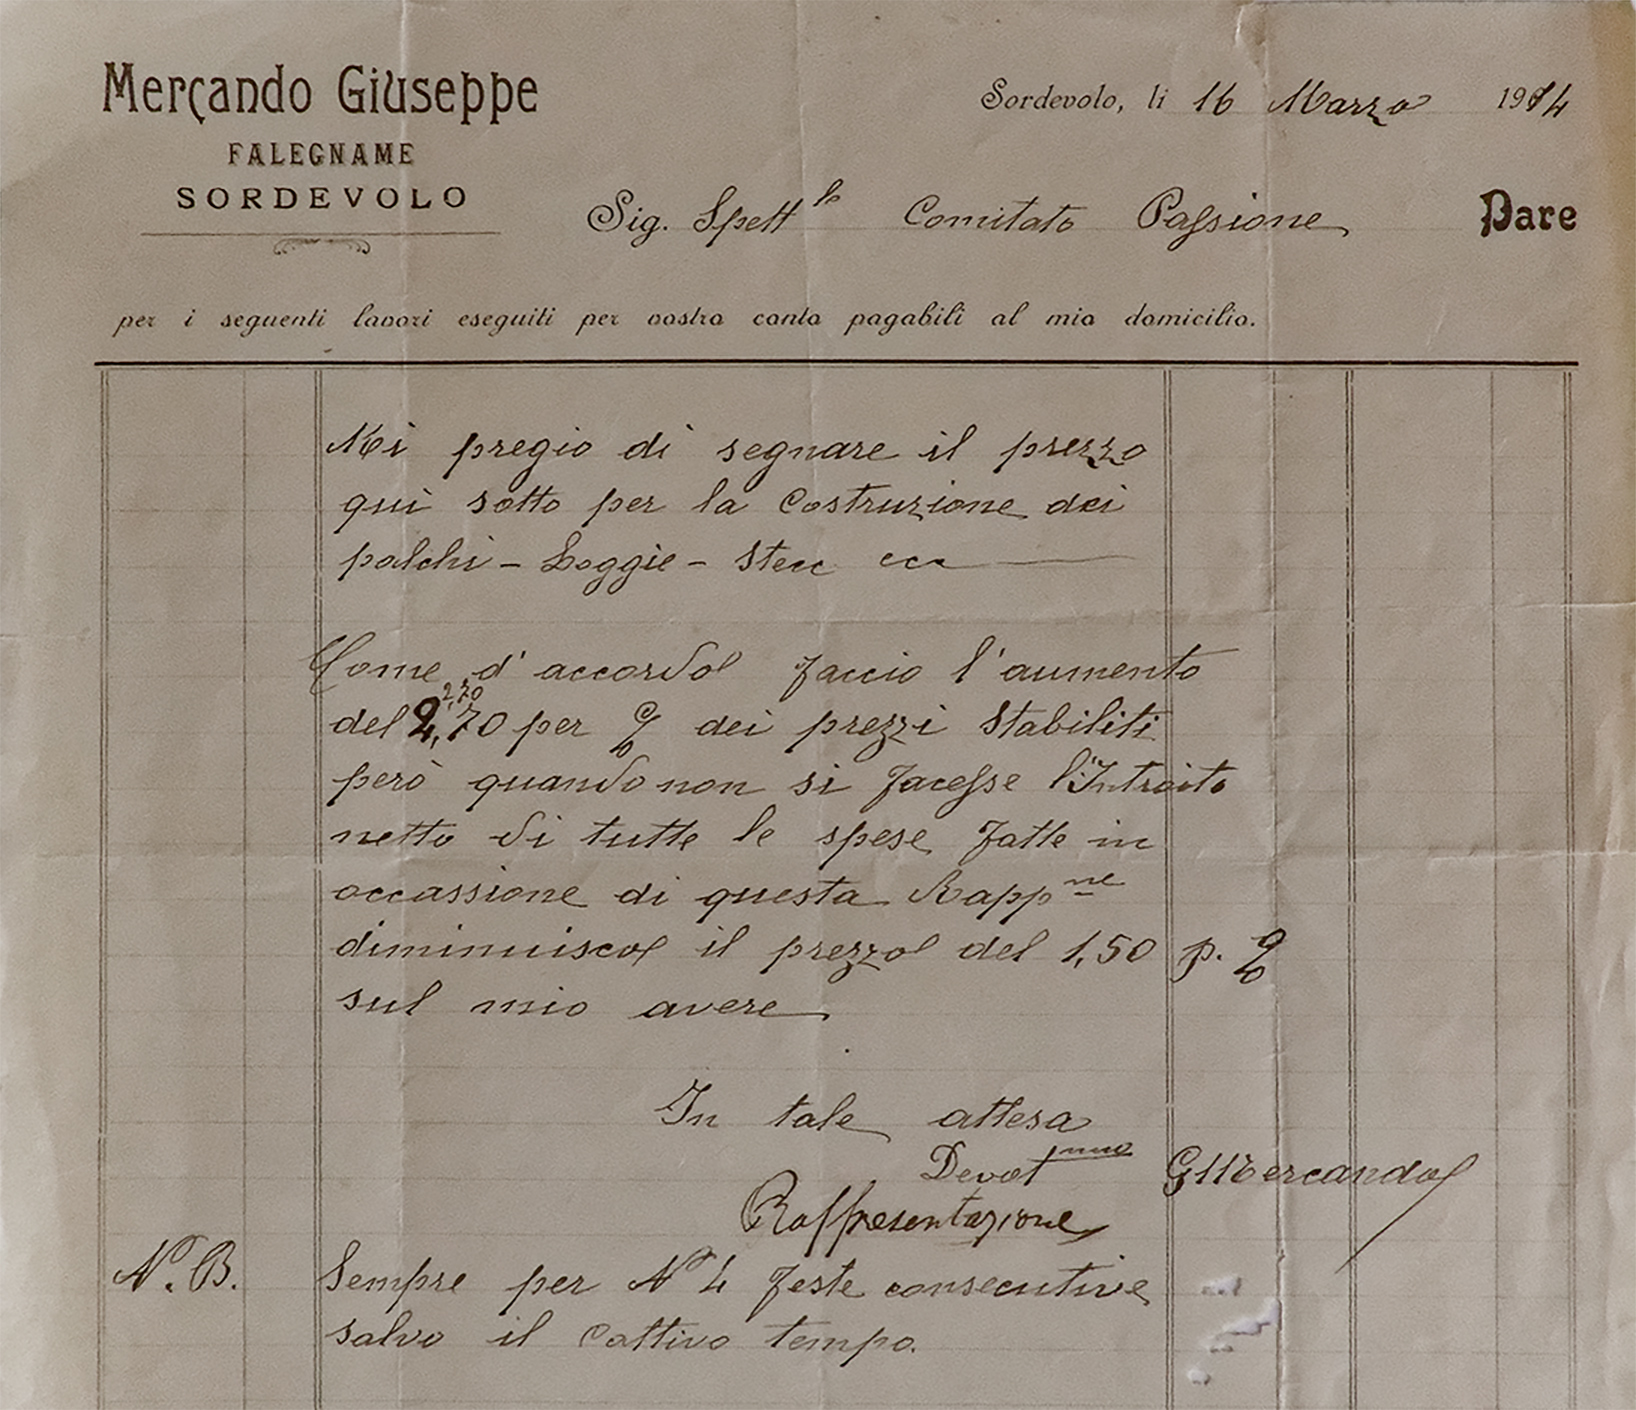 Mercando Giuseppe
FALEGNAME
SORDEVOLO
Sordevolo, li 16 Marzo 1914
Sig. Spett.le Comitato Passione Dare
per i seguenti lavori eseguiti per vostro conto pagabili al mio domicilio.
Mi pregio di segnare il prezzo
qui sotto per la Costruzione dei
palchi - Loggie - Stecc ecc
Come d'accordo faccio l'aumento
2,70
del 2,70 per % dei prezzi Stabiliti
però quando non si facesse l'Introito
netto di tutte le spese fatte in
occassione di questa Rappne
diminuisco il prezzo del 1,50 p. %
sul mio avere
In tale attesa
Devotmo GMercando
Rappresentazione
N.B. Sempre per No 4 feste consecutive
salvo il Cattivo tempo.